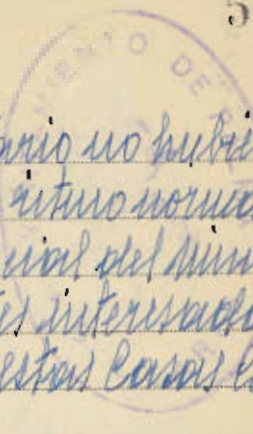 ario no hubie
ritmo normal
ial del Mun
tes interesado
estas Casas C